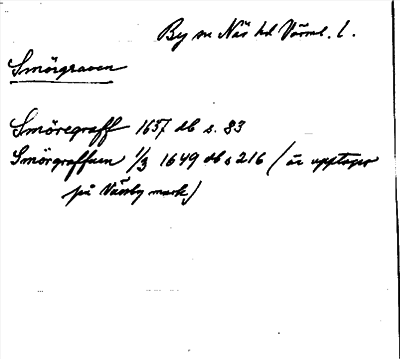 By sn Näs hd Värml. l.
Smörgraven
Smöregraff 1637 db s. 83
Smörgraffuen 1/3 1649 db s 216 (är upptaget
på Väseby mark)